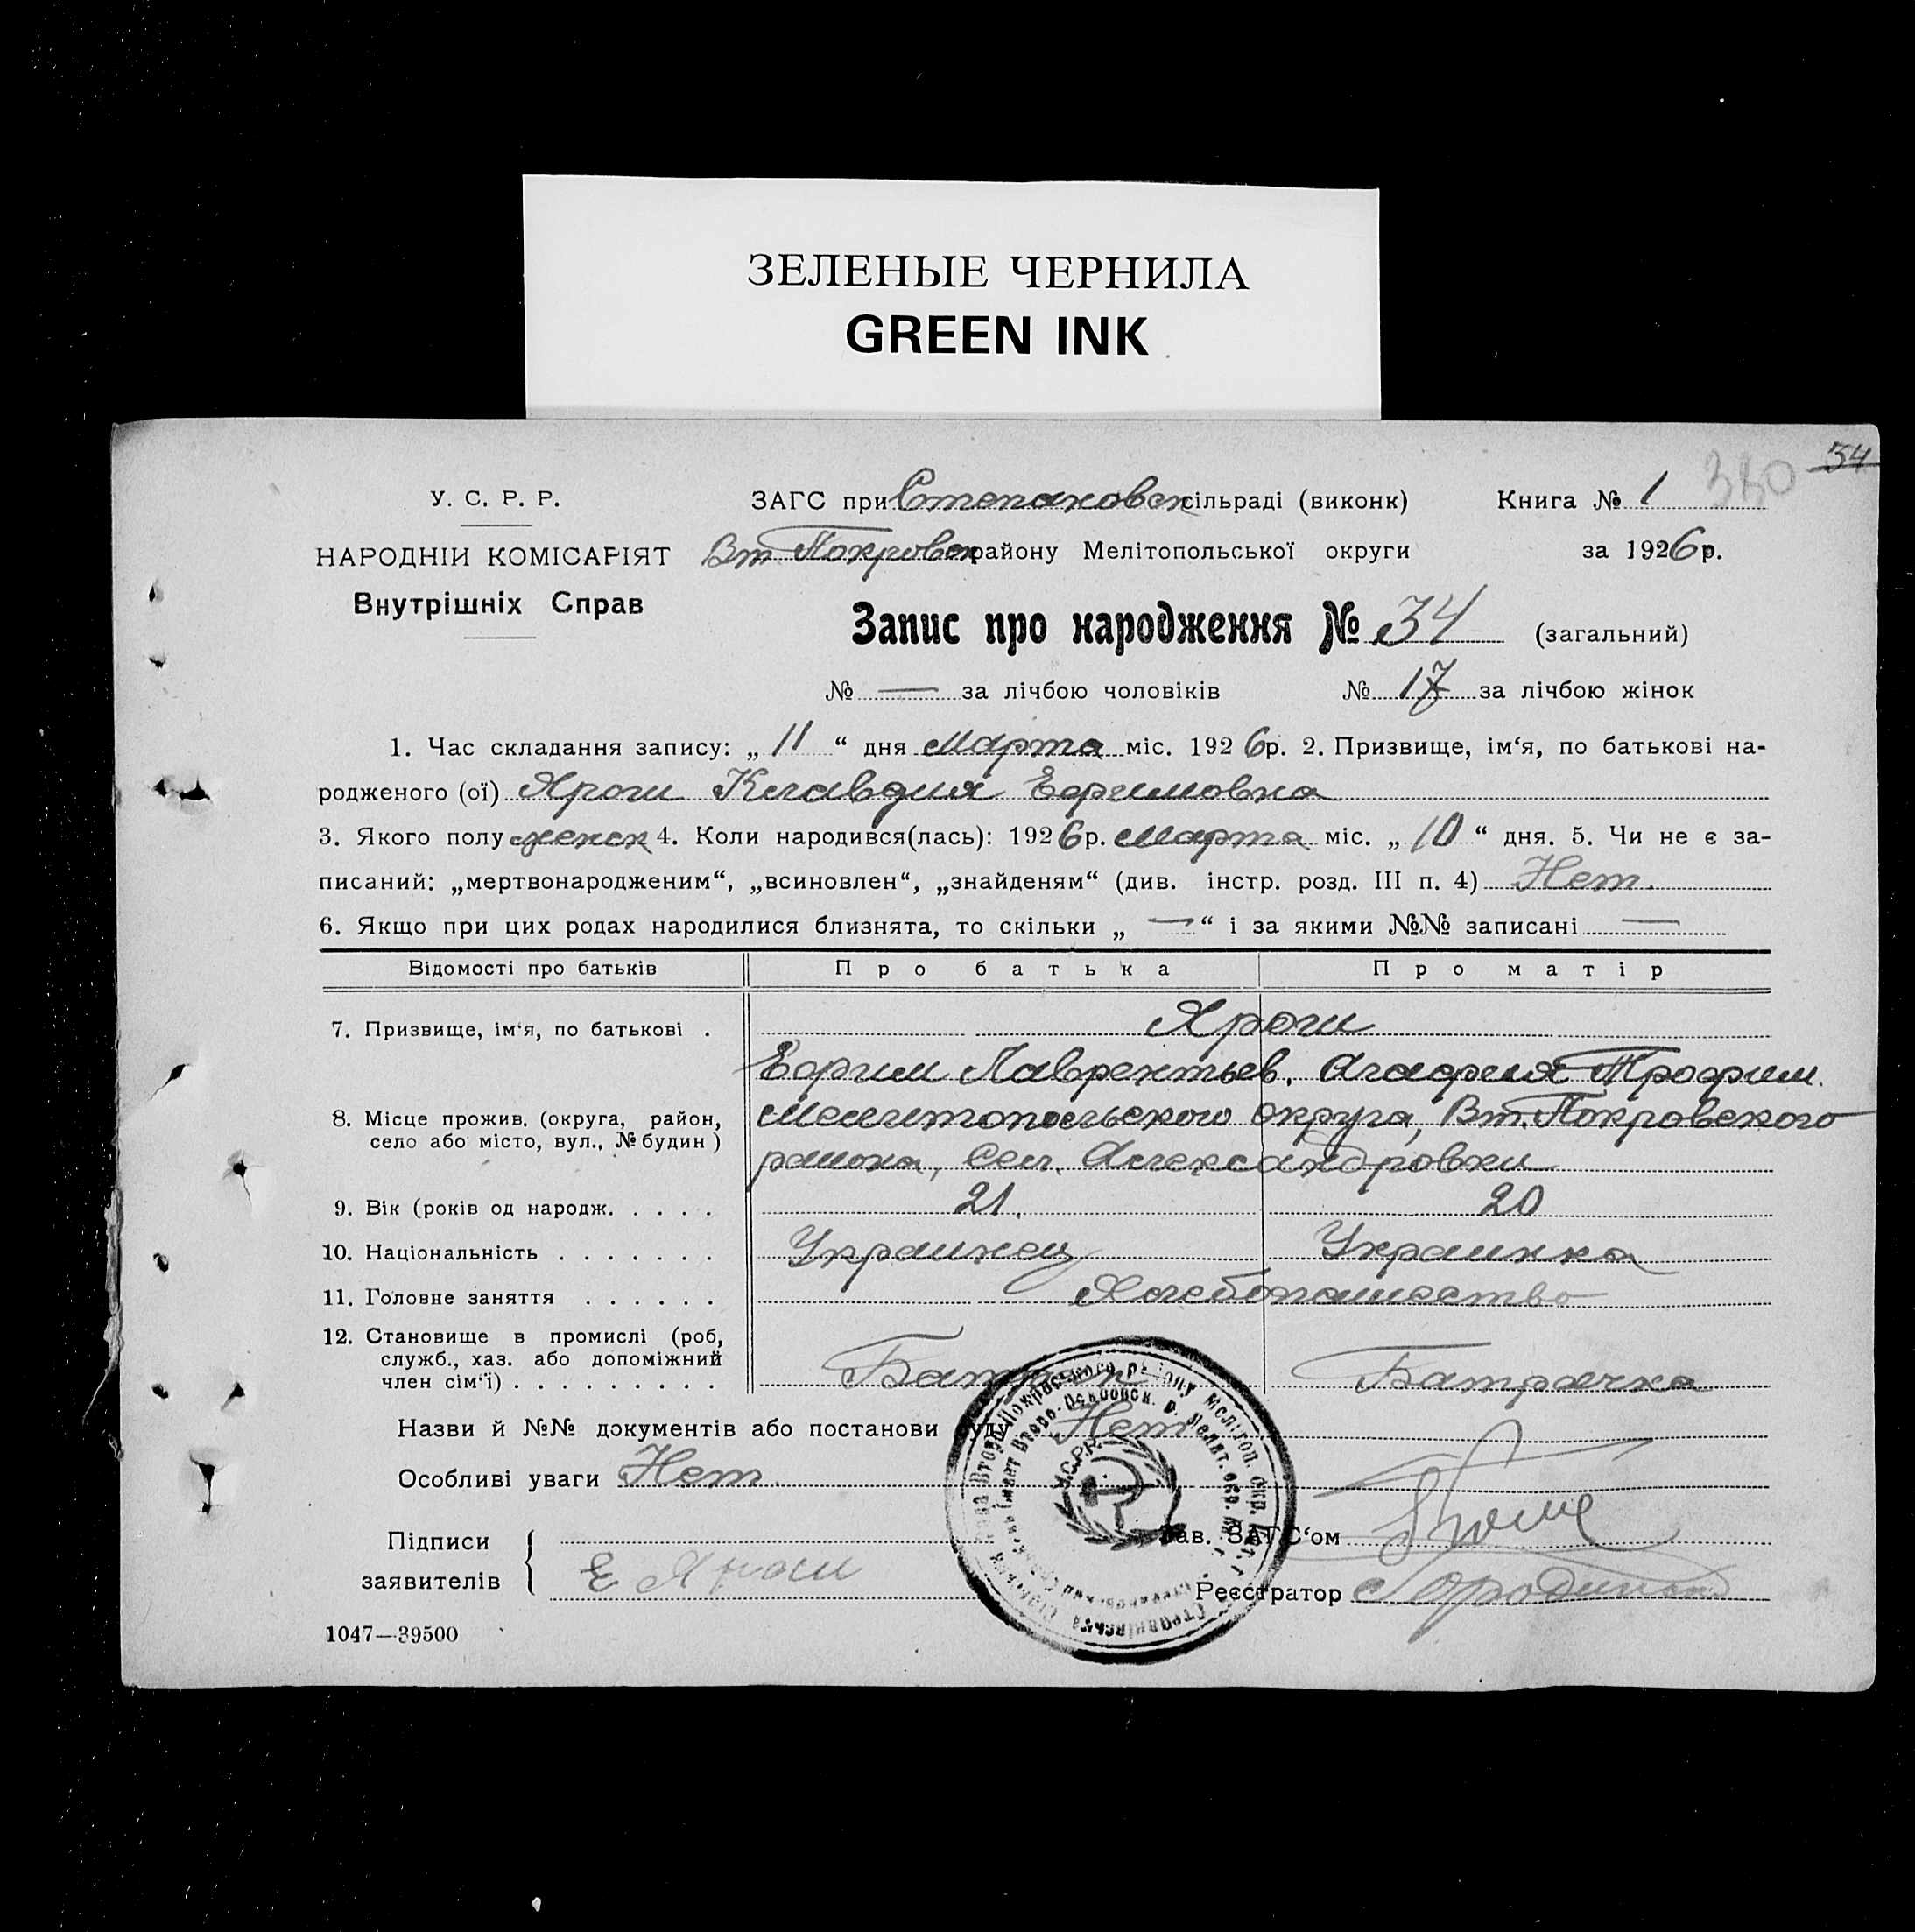 ЗЕЛЕНЫЕ ЧЕРНИЛА
GREEN INK
54
380
У. С. Р. Р.
ЗАГС при Степановск сільраді (виконк) Книга № 1
НАРОДНІЙ КОМІСАРІЯТ Вт Покровск району Мелітопольської округи за 1926 р.
Внутрішніх Справ
Запис про народження № 34 (загальний)
№ — за лічбою чоловіків № 17 за лічбою жінок
1. Час складання запису: „ 11 “ дня Марта міс. 1926 р. 2. Призвище, ім‘я, по батькові на-
родженого (ої) Ярош Клавдия Ефимовна
3. Якого полу женск 4. Коли народився(лась): 1926 р. Марта міс. „ 10 “ дня. 5. Чи не є за-
писаний: „мертвонародженим“, „всиновлен“, „знайденям“ (див. інстр. розд. III п. 4) Нет.
6. Якщо при цих родах народилися близнята, то скільки „ — “ і за якими №№ записані —
Відомості про батьків Про батька Про матір
7. Призвище, ім‘я, по батькові . Ярош
Ефим Лаврентьев. Агафия Трофим.
8. Місце прожив. (округа, район, село або місто, вул., № будин ) Мелитопольского округа, Вт. Покровского
района, сел. Александровки
9. Вік (років од народж. . . . . 21. 20
10. Національність . . . . . . . Украинец Украинка
11. Головне заняття . . . . . . Хлебопашество
12. Становище в промислі (роб, служб., хаз. або допоміжний член сім‘ї) . . . . . . . . . Батрак Батрачка
Назви й №№ документів або постанови суду Нет
Особливі уваги Нет.
Підписи
заявителів
Е Ярош
Зав. ЗАГС‘ом
Реєстратор
У.С.Р.Р.
1047—39500